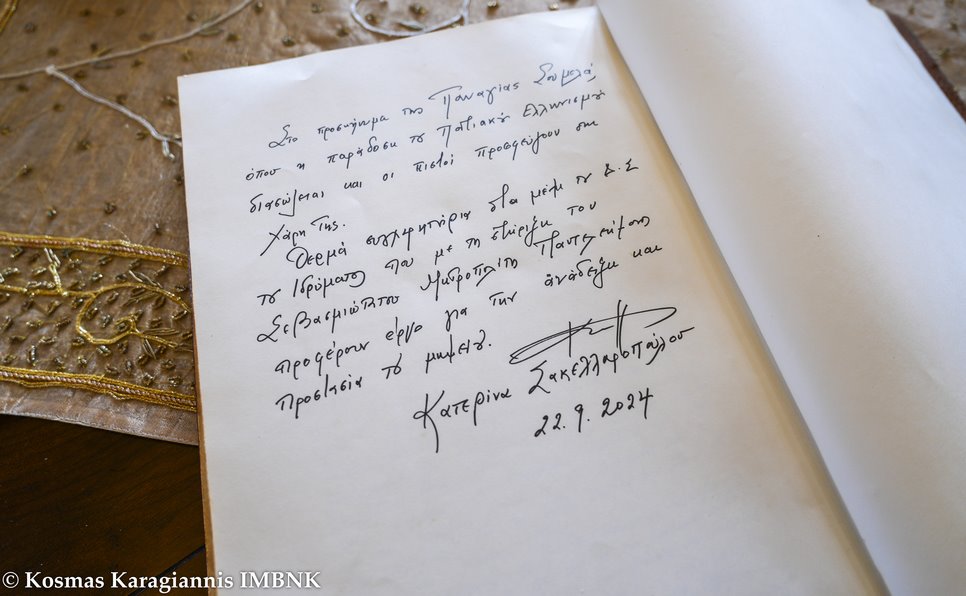 Στο προσκύνημα της Παναγίας Σουμελά,
όπου η παράδοση του Ποντιακού Ελληνισμού
διασώζεται και οι πιστοί προσφεύγουν στη
Χάρη Της.
Θερμά συγχαρητήρια στα μέλη του Δ.Σ
του Ιδρύματος που με τη στήριξη του
Σεβασμιωτάτου Μητροπολίτη Παντελεήμονος
προσφέρουν έργο για την ανάδειξη και
προστασία του μνημείου.
Κατερίνα Σακελλαροπούλου
22.9.2024
© Kosmas Karagiannis IMBNK